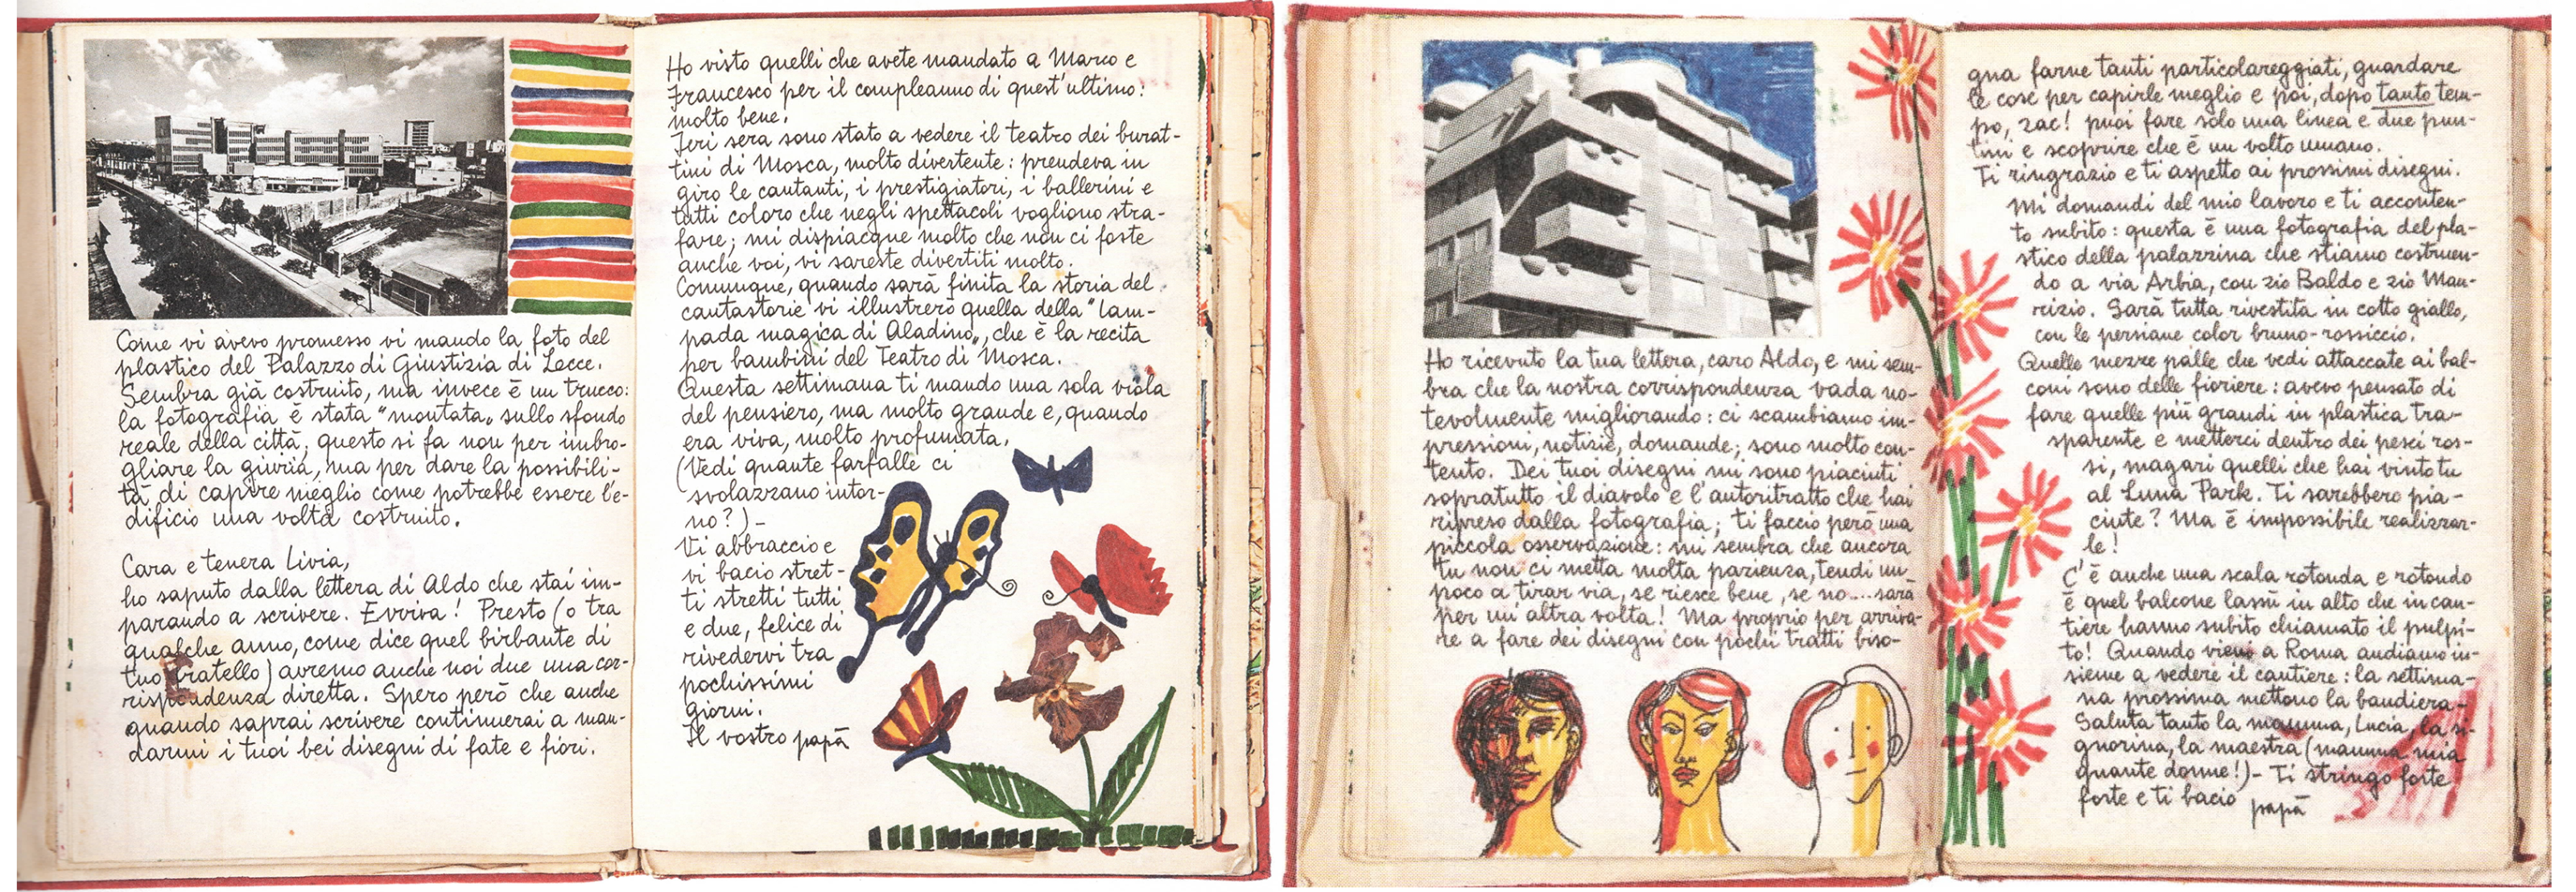 Come vi avevo promesso vi mando la foto del
plastico del Palazzo di Giustizia di Lecce.
Sembra già costruito, ma invece è un trucco:
la fotografia è stata "montata" sullo sfondo
reale della città, questo si fa non per imbro-
gliare la giuria, ma per dare la possibili-
tà di capire meglio come potrebbe essere l'e-
dificio una volta costruito.
Cara e tenera Livia,
ho saputo dalla lettera di Aldo che stai im-
parando a scrivere. Evviva! Presto (o tra
qualche anno, come dice quel birbante di
tuo fratello) avremo anche noi due una cor-
rispondenza diretta. Spero però che anche
quando saprai scrivere continuerai a man-
darmi i tuoi bei disegni di fate e fiori.
Ho visto quelli che avete mandato a Marco e
Francesco per il compleanno di quest'ultimo:
molto bene.
Ieri sera sono stato a vedere il teatro dei burat-
tini di Mosca, molto divertente: prendeva in
giro le cantanti, i prestigiatori, i ballerini e
tutti coloro che negli spettacoli vogliono stra-
fare; mi dispiacque molto che non ci foste
anche voi, vi sareste divertiti molto.
Comunque, quando sarà finita la storia del
cantastorie vi illustrerò quella della "lam-
pada magica di Aladino", che è la recita
per bambini del Teatro di Mosca.
Questa settimana ti mando una sola viola
del pensiero, ma molto grande e, quando
era viva, molto profumata.
(Vedi quante farfalle ci
svolazzano intor-
no?)-
Vi abbraccio e
vi bacio stret-
ti stretti tutti
e due, felice di
rivedervi tra
pochissimi
giorni.
Il vostro papà
Ho ricevuto la tua lettera, caro Aldo, e mi sem-
bra che la nostra corrispondenza vada no-
tevolmente migliorando: ci scambiamo im-
pressioni, notizie, domande; sono molto con-
tento. Dei tuoi disegni mi sono piaciuti
sopratutto il diavolo e l'autoritratto che hai
ripreso dalla fotografia; ti faccio però una
piccola osservazione: mi sembra che ancora
tu non ci metta molta pazienza, tendi un
poco a tirar via, se riesce bene, se no....sarà
per un'altra volta! Ma proprio per arriva-
re a fare dei disegni con pochi tratti biso-
gna farne tanti particolareggiati, guardare
le cose per capirle meglio e poi, dopo tanto tem-
po, zac! puoi fare solo una linea e due pun-
tini e scoprire che è un volto umano.
Ti ringrazio e ti aspetto ai prossimi disegni.
Mi domandi del mio lavoro e ti acconten-
to subito: questa è una fotografia del pla-
stico della palazzina che stiamo costruen-
do a via Arbia, con zio Baldo e zio Mau-
rizio. Sarà tutta rivestita in cotto giallo,
con le persiane color bruno-rossiccio.
Quelle mezze palle che vedi attaccate ai bal-
coni sono delle fioriere: avevo pensato di
fare quelle più grandi in plastica tra-
sparente e metterci dentro dei pesci ros-
si, magari quelli che hai vinto tu
al Luna Park. Ti sarebbero pia-
ciute? Ma è impossibile realizzar-
le!
C'è anche una scala rotonda e rotondo
è quel balcone lassù in alto che in can-
tiere hanno subito chiamato il pulpi-
to! Quando vieni a Roma andiamo in-
sieme a vedere il cantiere: la settima-
na prossima mettono la bandiera-
Saluta tanto la mamma, Lucia, la si-
gnorina, la maestra (mamma mia
quante donne!)- Ti stringo forte
forte e ti bacio papà